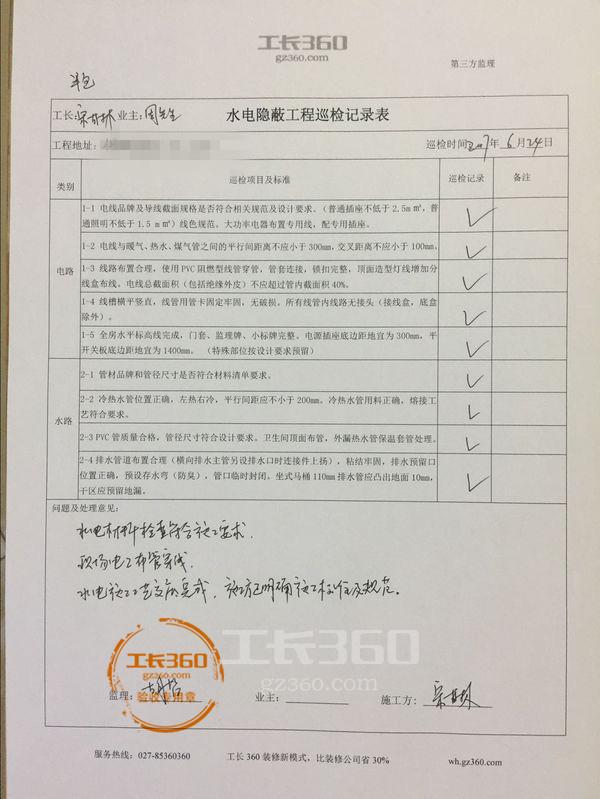 工长360
gz360.com
第三方监理
半包
水电隐蔽工程巡检记录表
工长: 业主: 周先生
工程地址: 巡检时间 2017年 6月24日
类别 巡检项目及标准 巡检记录 备注
电路
1-1 电线品牌及导线截面规格是否符合相关规范及设计要求。(普通插座不低于 2.5m㎡,普
通照明不低于 1.5 m㎡)线色规范。大功率电器布置专用线,配专用插座。
1-2 电线与暖气、热水、煤气管之间的平行间距离不应小于300mm,交叉距离不应小于100mm。
1-3 线路布置合理,使用PVC 阻燃型线管穿管,管套连接,锁扣完整,顶面造型灯线增加分
线盒布线。电线总截面积(包括绝缘外皮)不应超过管内截面积 40%。
1-4 线槽横平竖直,线管用管卡固定牢固,无破损。所有线管内线路无接头(接线盒,底盒
除外)。
1-5 全房水平标高线完成,门套、监理牌、小标牌完整。电源插座底边距地宜为300mm,平
开关板底边距地宜为1400mm。 (特殊部位按设计要求预留)
水路
2-1 管材品牌和管径尺寸是否符合材料清单要求。
2-2 冷热水管位置正确,左热右冷,平行间距应不小于200mm。冷热水管用料正确,熔接工
艺符合要求。
2-3 PVC管质量合格,管径尺寸符合设计要求。卫生间顶面布管,外漏热水管保温套管处理。
2-4 排水管道布置合理(横向排水主管另设排水口时连接件上扬),粘结牢固,排水预留口
位置正确,预设存水弯(防臭),管口临时封闭。坐式马桶 110mm 排水管应凸出地面 10mm,
干区应预留地漏。
问题及处理意见:
水电材料检查符合施工要求.
现场电工布管穿线.
水电施工工艺交底完成,施工方已明确施工标准及规范。
工长360
gz360.com
工长360
验收专用章
监理: 业主: 施工方:
服务热线: 027-85360360 工长 360 装修新模式,比装修公司省 30% wh.gz360.com